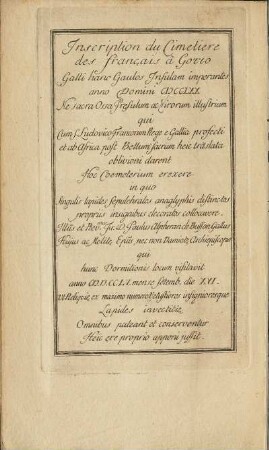 Inscription du Cimetiere
des français à Gozio
Galli hanc Gaulos Insulam imperantes
anno Domini
Ne sacra Ossa Præsulum ac Virorum illustrium
qui
Cum S. Ludovico Francorum Rege e Gallia profecti
et ab Africa post Bellum sacrum huic traslata
oblivioni darent
Hoc Coemeterium erexere
in quo
Singulis lapides sepulchrales anaglyphis distinctos
propriis insignibus decoratos collocavere.
Illus et Rev. Fr. D. Paulus Alpheran de Bussan Gallus
Hujus ac Melitæ Epus nec non Damiatæ Archiepiscopus
qui
hunc Dormitionis locum visitavit
anno mense septemb. die XVI.
Ut Religiæ, ex maximo numero Vestigiores insignioresque
Lapides investitiæ,
Omnibus pateant et conserventur
Heic ære proprio apponi jussit.